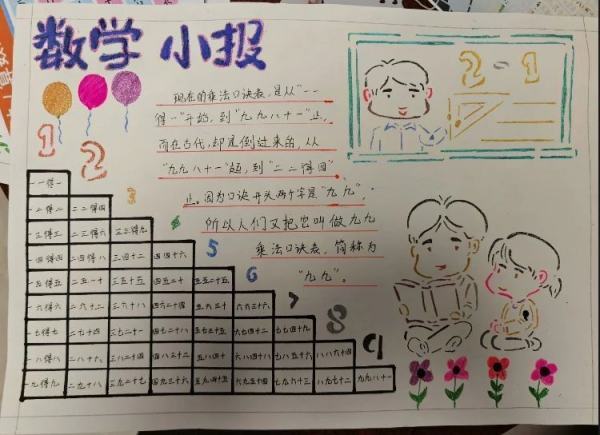 数学 小报
现在的乘法口诀表,是从“一一
得一”开始,到“九九八十一”止,
而在古代,却是倒过来的,从
“九九八十一”起,到“二二得四”
止。因为口诀开头两个字是“九九”,
所以人们又把它叫做九九
乘法口诀表,简称为
“九九”。
2-1
1 2 3 4 5 6 7 8 9
一一得一
一二得二 二二得四
一三得三 二三得六 三三得九
一四得四 二四得八 三四十二 四四十六
一五得五 二五一十 三五十五 四五二十 五五二十五
一六得六 二六十二 三六十八 四六二十四 五六三十 六六三十六
一七得七 二七十四 三七二十一 四七二十八 五七三十五 六七四十二 七七四十九
一八得八 二八十六 三八二十四 四八三十二 五八四十 六八四十八 七八五十六 八八六十四
一九得九 二九十八 三九二十七 四九三十六 五九四十五 六九五十四 七九六十三 八九七十二 九九八十一